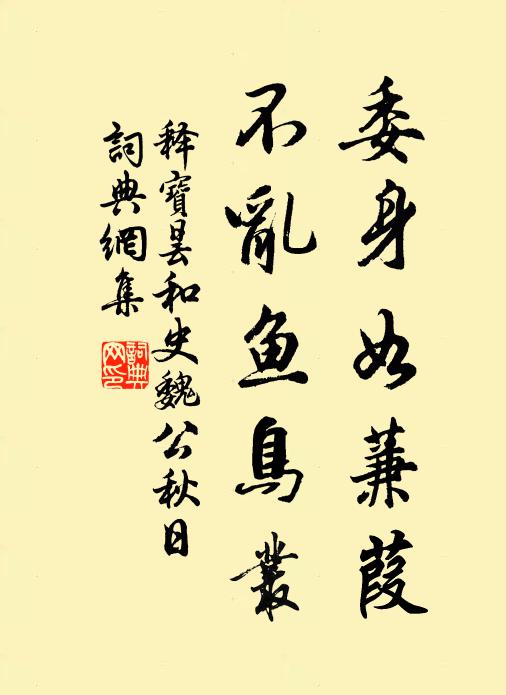 委身如蒹葭
不亂鱼鳥叢
释寶曇和史魏公秋日
詞典網集
詞典网印